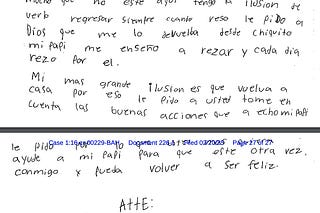 mucho que no este aqui tengo la ilusion de
verlo regresar siempre cuando reso le pido a
Dios que me lo desde chiquito
mi papi me enseño a rezar y cada dia
rezo por el.
Mi mas grande ilusion es que vuelva a
casa por eso le pido a usted tome en
cuenta las buenas acciones que a echo mi papi
Case Document Filed Page
le pido por
ayude a mi papi para que este otra vez.
conmigo y pueda volver a ser feliz.
ATTE: